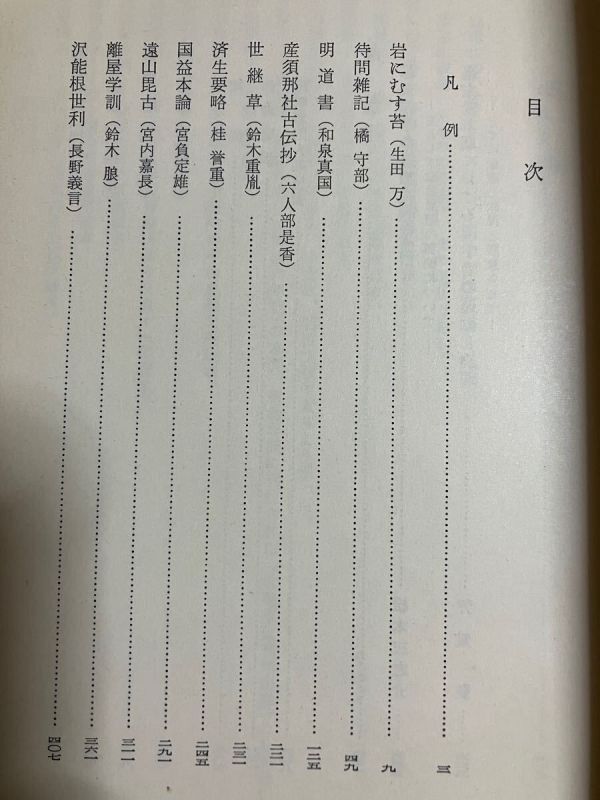 目次
凡例……三
岩にむす苔（生田 万）……九
待問雑記（橘 守部）……四九
明道書（和泉真国）……一二五
産須那社古伝抄（六人部是香）……二二一
世継草（鈴木重胤）……二三一
済生要略（桂 誉重）……二四五
国益本論（宮負定雄）……二九一
遠山毘古（宮内嘉長）……三一一
離屋学訓（鈴木 朖）……三六一
沢能根世利（長野義言）……四〇七